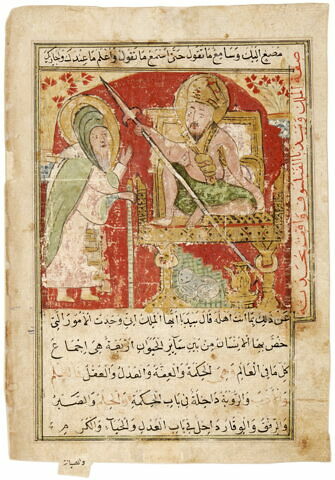 مصيع اليك وسامع ما تقول حتى استمع ما تقول واعلم ما عندك
صفة الملك وبيدبا الفيلسوف واقف بحدثه
عن ذلك ما انت اهله قال بيدبا ايها الملك اني وجدت الامور التي
خص بها الانسان من بين ساير الحيوان اربعة هى اجماع
كل ما فى العالم الحكمة والعفة والعدل والعقل
والروية داخلة فى باب الحكمة والصبر
والرفق والوقار داخل فى باب العدل والحيا والكر
والصيانة